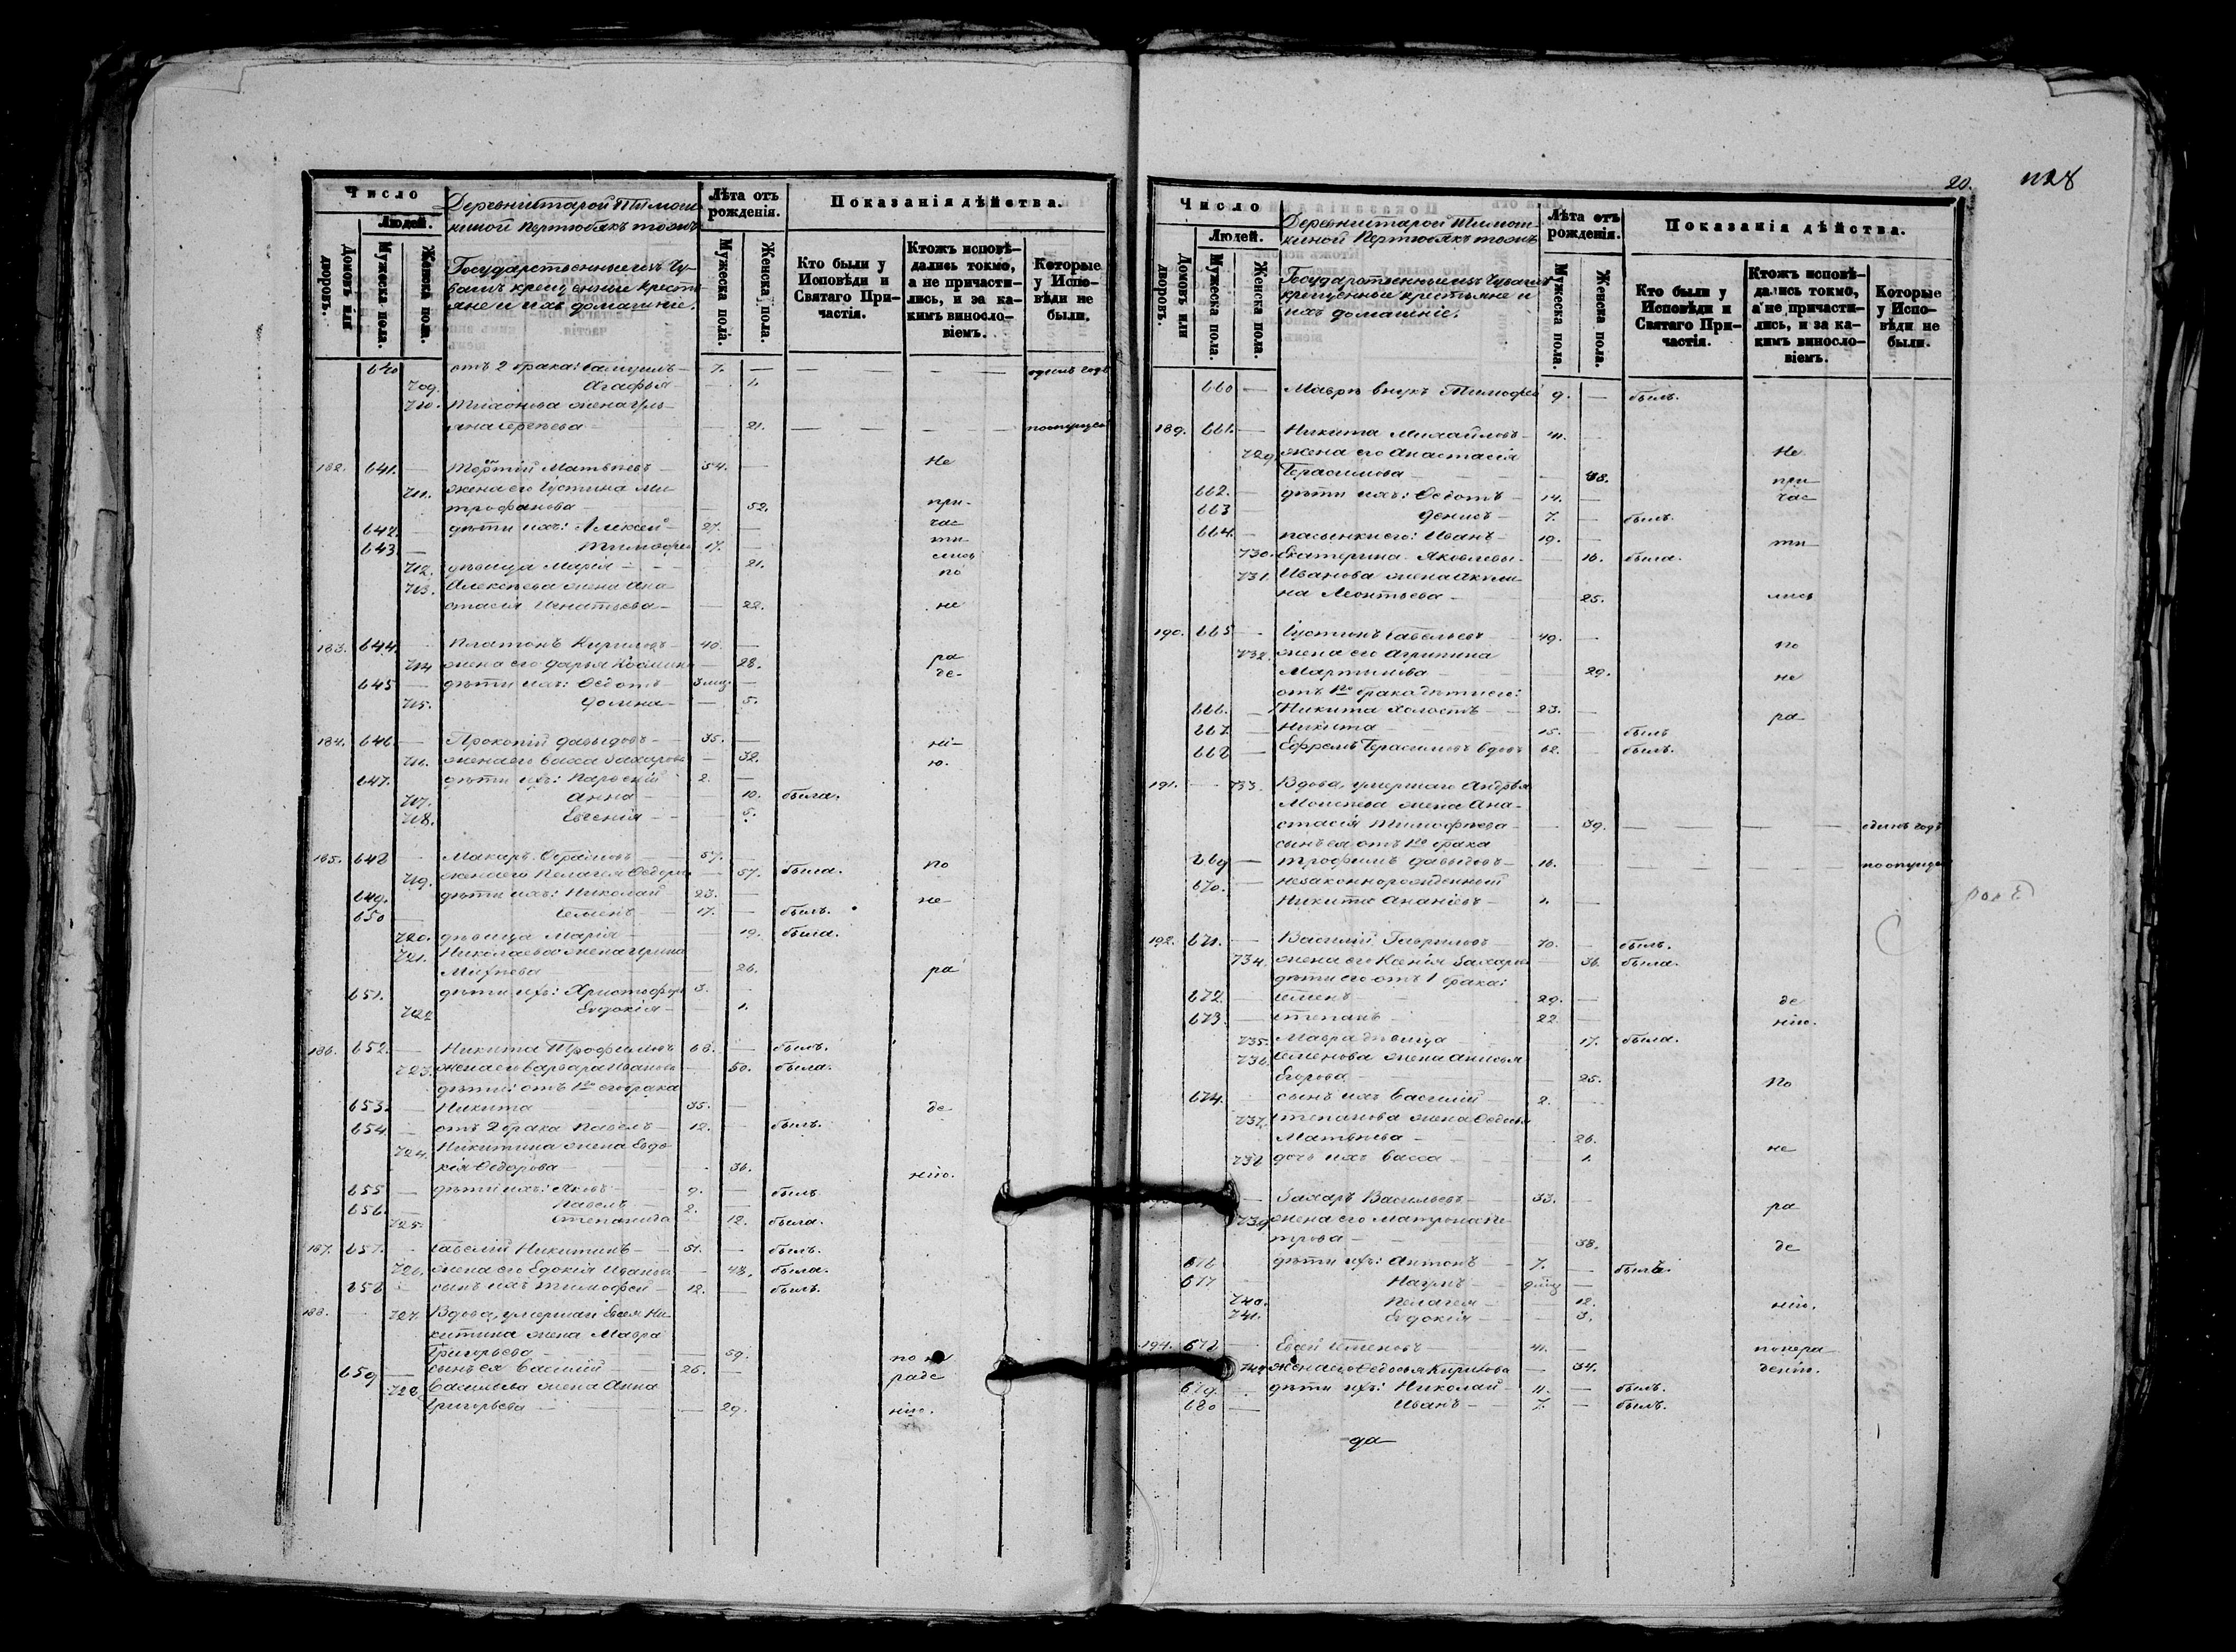 Число
Людей.
Домовъ или дворовъ.
Мужеска пола.
Женска пола.
Деревни Старой Тимош-
киной Пертюбякъ тожъ
Государственные изъ Чу-
вашъ крещеные кресть
яне и ихъ домашніе.
Лѣта отъ рожденія.
Мужеска пола.
Женска пола.
Показанія дѣйства.
Кто были у Исповѣди и Святаго При-частія.
Ктожъ исповѣ-дались токмо, а не причасти-лись, и за ка-кимъ виносло-віемъ.
Которые у Испо-вѣди не были.
640 отъ 2 брака: Самуилъ 7. одинъ годъ
709 Агафья 1.
710. Тихонова жена Уль-
яна Сергѣева 21. по опущен
182. 641. Матвѣевъ 54. Не
711. жена его Іустина Ми-
трофанова 52. при-
642. дѣти ихъ: Алексѣй 27. час
643. Тимофей 17. ти
712. дѣвица Марія 21. лись по
713. Алексѣева жена Ана-
стасія Игнатьева 22. не
183. 644. Платонъ Кириловъ 40.
714 жена его Дарья Косьмина 28. ра
645 дѣти ихъ: Ѳедотъ 3 мц. де-
715. Домна 5.
184. 646. Прокопій Давыдовъ 35. ні-
716. жена его Васса Захарова 32. ю.
647. дѣти ихъ: 2.
717. Анна 10. была.
718. Евгенія 5.
185. 648 Макаръ 57. по
719. жена его Пелагея Ѳедоров 57. была.
649. дѣти ихъ: Николай 23. не
650 Семенъ 17. былъ.
720. дѣвица Марія 19. была.
721. Николаева жена Ирина
Михѣева 26. ра
651. дѣти ихъ: Христофоръ 3.
722 Евдокія 1.
186. 652. Никита Трофимовъ 68. былъ.
723. жена его Варвара Иванова 50. была.
дѣти: отъ 1го его брака
653. Никита 35. де
654 отъ 2 брака Павелъ 12. былъ.
724. Никитина жена Евдо
кія Ѳедорова 36. нію.
655 дѣти ихъ: Яковъ 9. былъ
656. Павелъ 2.
725. Степанида 12. была.
187. 657. Савелій Никитинъ 51. былъ.
726. жена его Едокія Иванова 48. была.
658 сынъ ихъ Тимофей 12. былъ.
188. 727. Вдова, умершаго Евсея Ни-
китина жена Мавра
Григорьева 59. по не
659 сынъ ея Василій 25. раде
728. Васильева жена Анна
Григорьева 29. нію.
20.
Число
Людей.
Домовъ или дворовъ.
Мужеска пола.
Женска пола.
Деревни Старой Тимош-
киной Пертюбякъ тожъ
Государственные изъ Чувашъ
крещеные крестьяне и
ихъ домашніе.
Лѣта отъ рожденія.
Мужеска пола.
Женска пола.
Показанія дѣйства.
Кто были у Исповѣди и Святаго При-частія.
Ктожъ исповѣ-дались токмо, а не причасти-лись, и за ка-кимъ виносло-віемъ.
Которые у Испо-вѣди не были.
660 Мавры внукъ Тимофей 9. былъ.
189. 661. Никита Михайловъ 41.
729. жена его Анастасія Не
Герасимова 48. при
662. дѣти ихъ: Ѳедотъ 14. час
663 Денисъ 7. былъ.
664. пасынки его: Иванъ 19. ти
730. Екатерина Яковлевы 16. была.
731. Иванова жена Акули-
на Леонтьева 25. лись
190. 665 Іустинъ Савельевъ 49. по
732. жена его Агрипина
Мартынова 29. не
отъ 1го брака дѣти его:
666. Никита холостъ 23. ра
667. Никита 15. былъ
668 Ефремъ Герасимовъ вдовъ 62. былъ.
191. 733. Вдова, умершаго Андрѣя
Моисеева жена Ана-
стасія Тимофѣева 39. одинъ годъ
сынъ ея отъ 1го брака
669 Трофимъ Давыдовъ 16. по опущен
670. незаконнорожденный
Никита Ананіевъ 1.
192. 671. Василій Гавриловъ 70. былъ.
734. жена его Ксенія Захаров 56. была.
дѣти его отъ 1 брака:
672. Семенъ 29. де
673. Степанъ 22 нію.
735. Мавра дѣвица 17. была.
736. Семенова жена Анисья
Егорова 25. По
674. сынъ ихъ Василій 2.
737. Степанова жена Ѳедосья
Матвѣева 26.
738 дочь ихъ Васса 1. не
Захаръ Васильевъ 33. ра
739. жена его Матрона Пе-
трова 38. де
676 дѣти ихъ: Антонъ 7. былъ.
677 Наумъ
740. Пелагея 12. нію.
741. Евдокія 3.
194. 678 Евсей Семеновъ 41. понера
742 жена его Ѳедосья Кирилова 34. денію.
679. дѣти ихъ: Николай 11. былъ.
680 Иванъ 7. былъ.